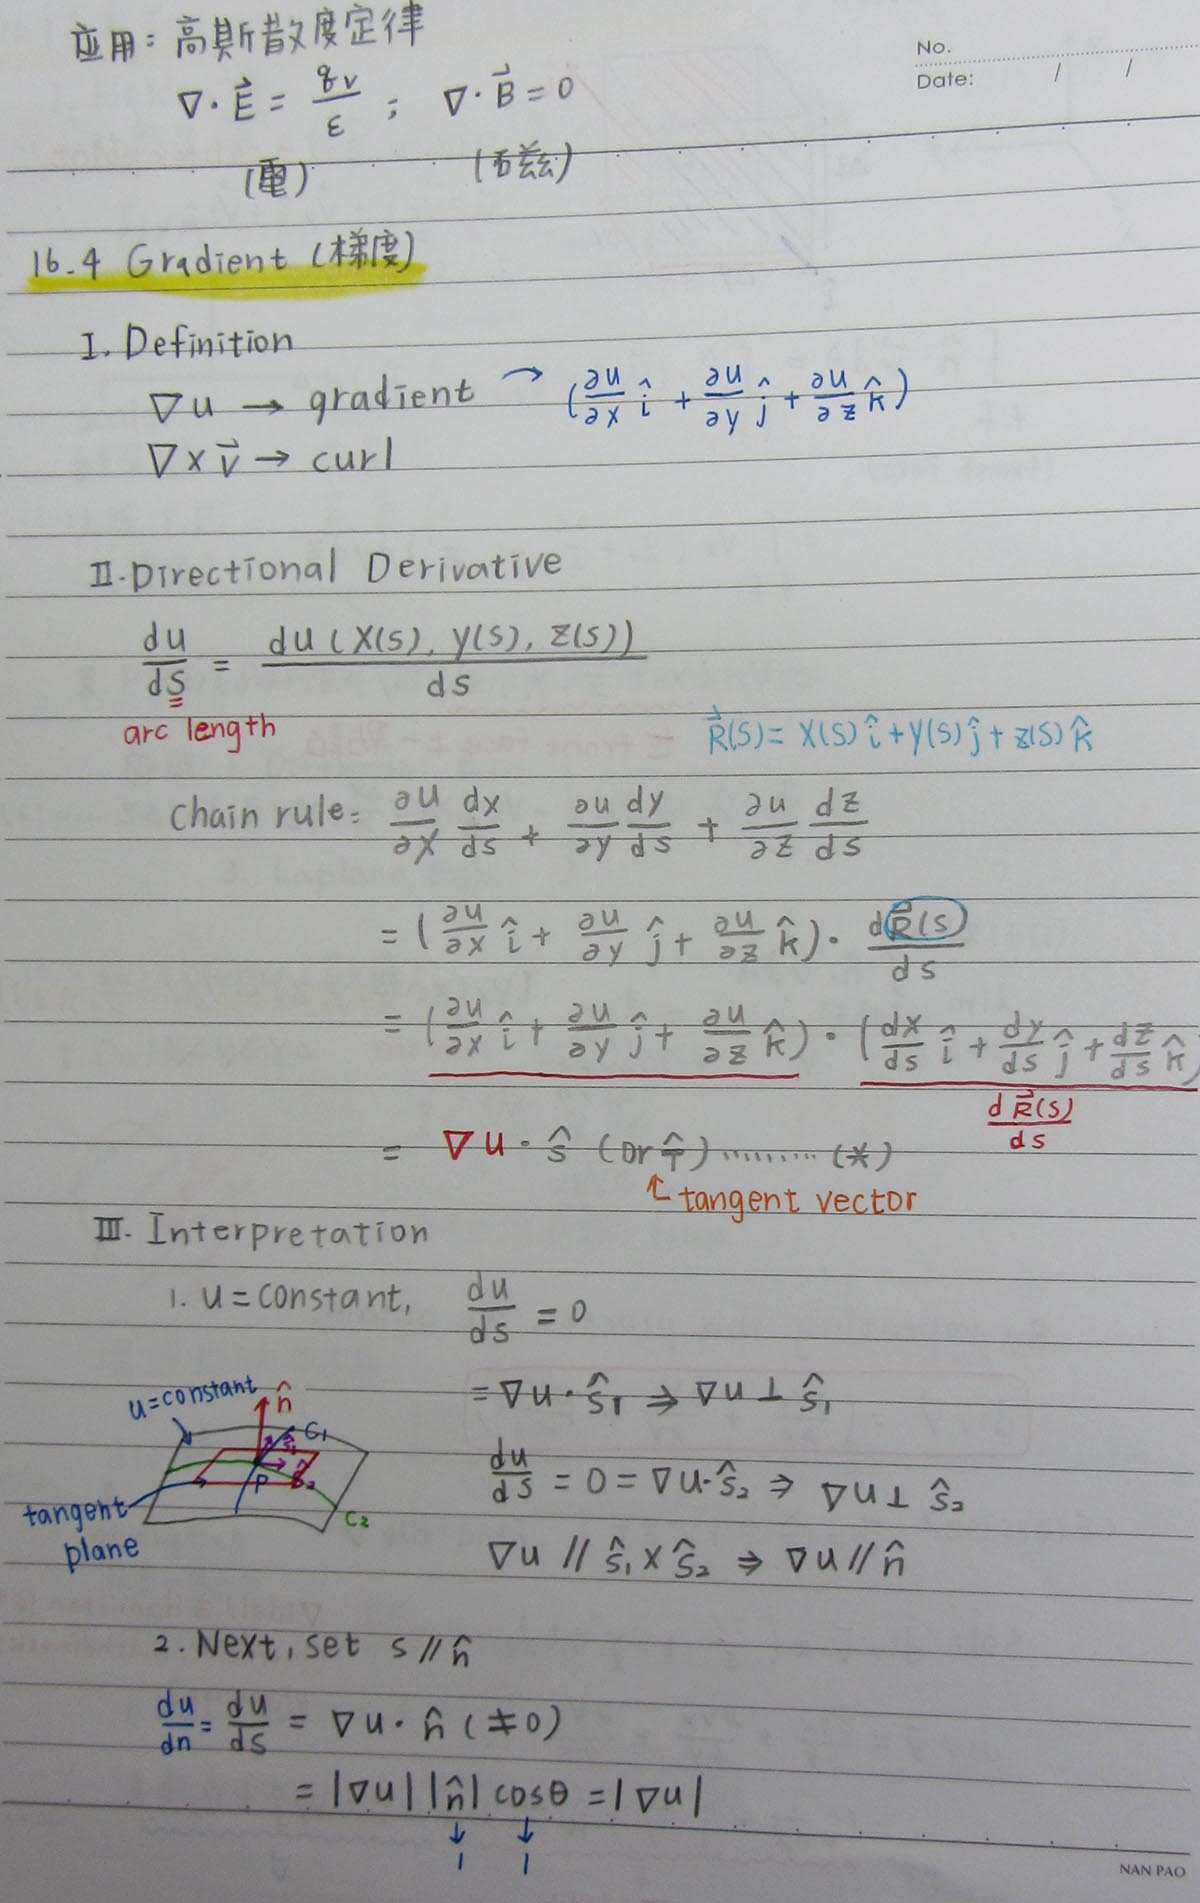 应用：高斯散度定律
No.
Date: / /
∇·E⃗ = qv/ε ; ∇·B⃗ = 0
(電) (磁)
16.4 Gradient (梯度)
I. Definition
∇u → gradient → (∂u/∂x î + ∂u/∂y ĵ + ∂u/∂z k̂)
∇×v⃗ → curl
II. Directional Derivative
du/ds = du(x(s), y(s), z(s))/ds
arc length
R⃗(s) = x(s)î + y(s)ĵ + z(s)k̂
Chain rule: ∂u/∂x dx/ds + ∂u/∂y dy/ds + ∂u/∂z dz/ds
= (∂u/∂x î + ∂u/∂y ĵ + ∂u/∂z k̂)· dR⃗(s)/ds
= (∂u/∂x î + ∂u/∂y ĵ + ∂u/∂z k̂)·(dx/ds î + dy/ds ĵ + dz/ds k̂)
dR⃗(s)/ds
= ∇u·ŝ (or T̂) ......... (*)
tangent vector
III. Interpretation
1. u = constant, du/ds = 0
= ∇u·ŝ₁ ⇒ ∇u ⊥ ŝ₁
u=constant n̂
C₁
ŝ₁
ŝ₂
P
C₂
tangent
plane
du/ds = 0 = ∇u·ŝ₂ ⇒ ∇u ⊥ ŝ₂
∇u // ŝ₁ × ŝ₂ ⇒ ∇u // n̂
2. Next, set s // n̂
du/dn = du/ds = ∇u·n̂ (≠0)
= |∇u| |n̂| cosθ = |∇u|
↓ ↓
1 1
NAN PAO